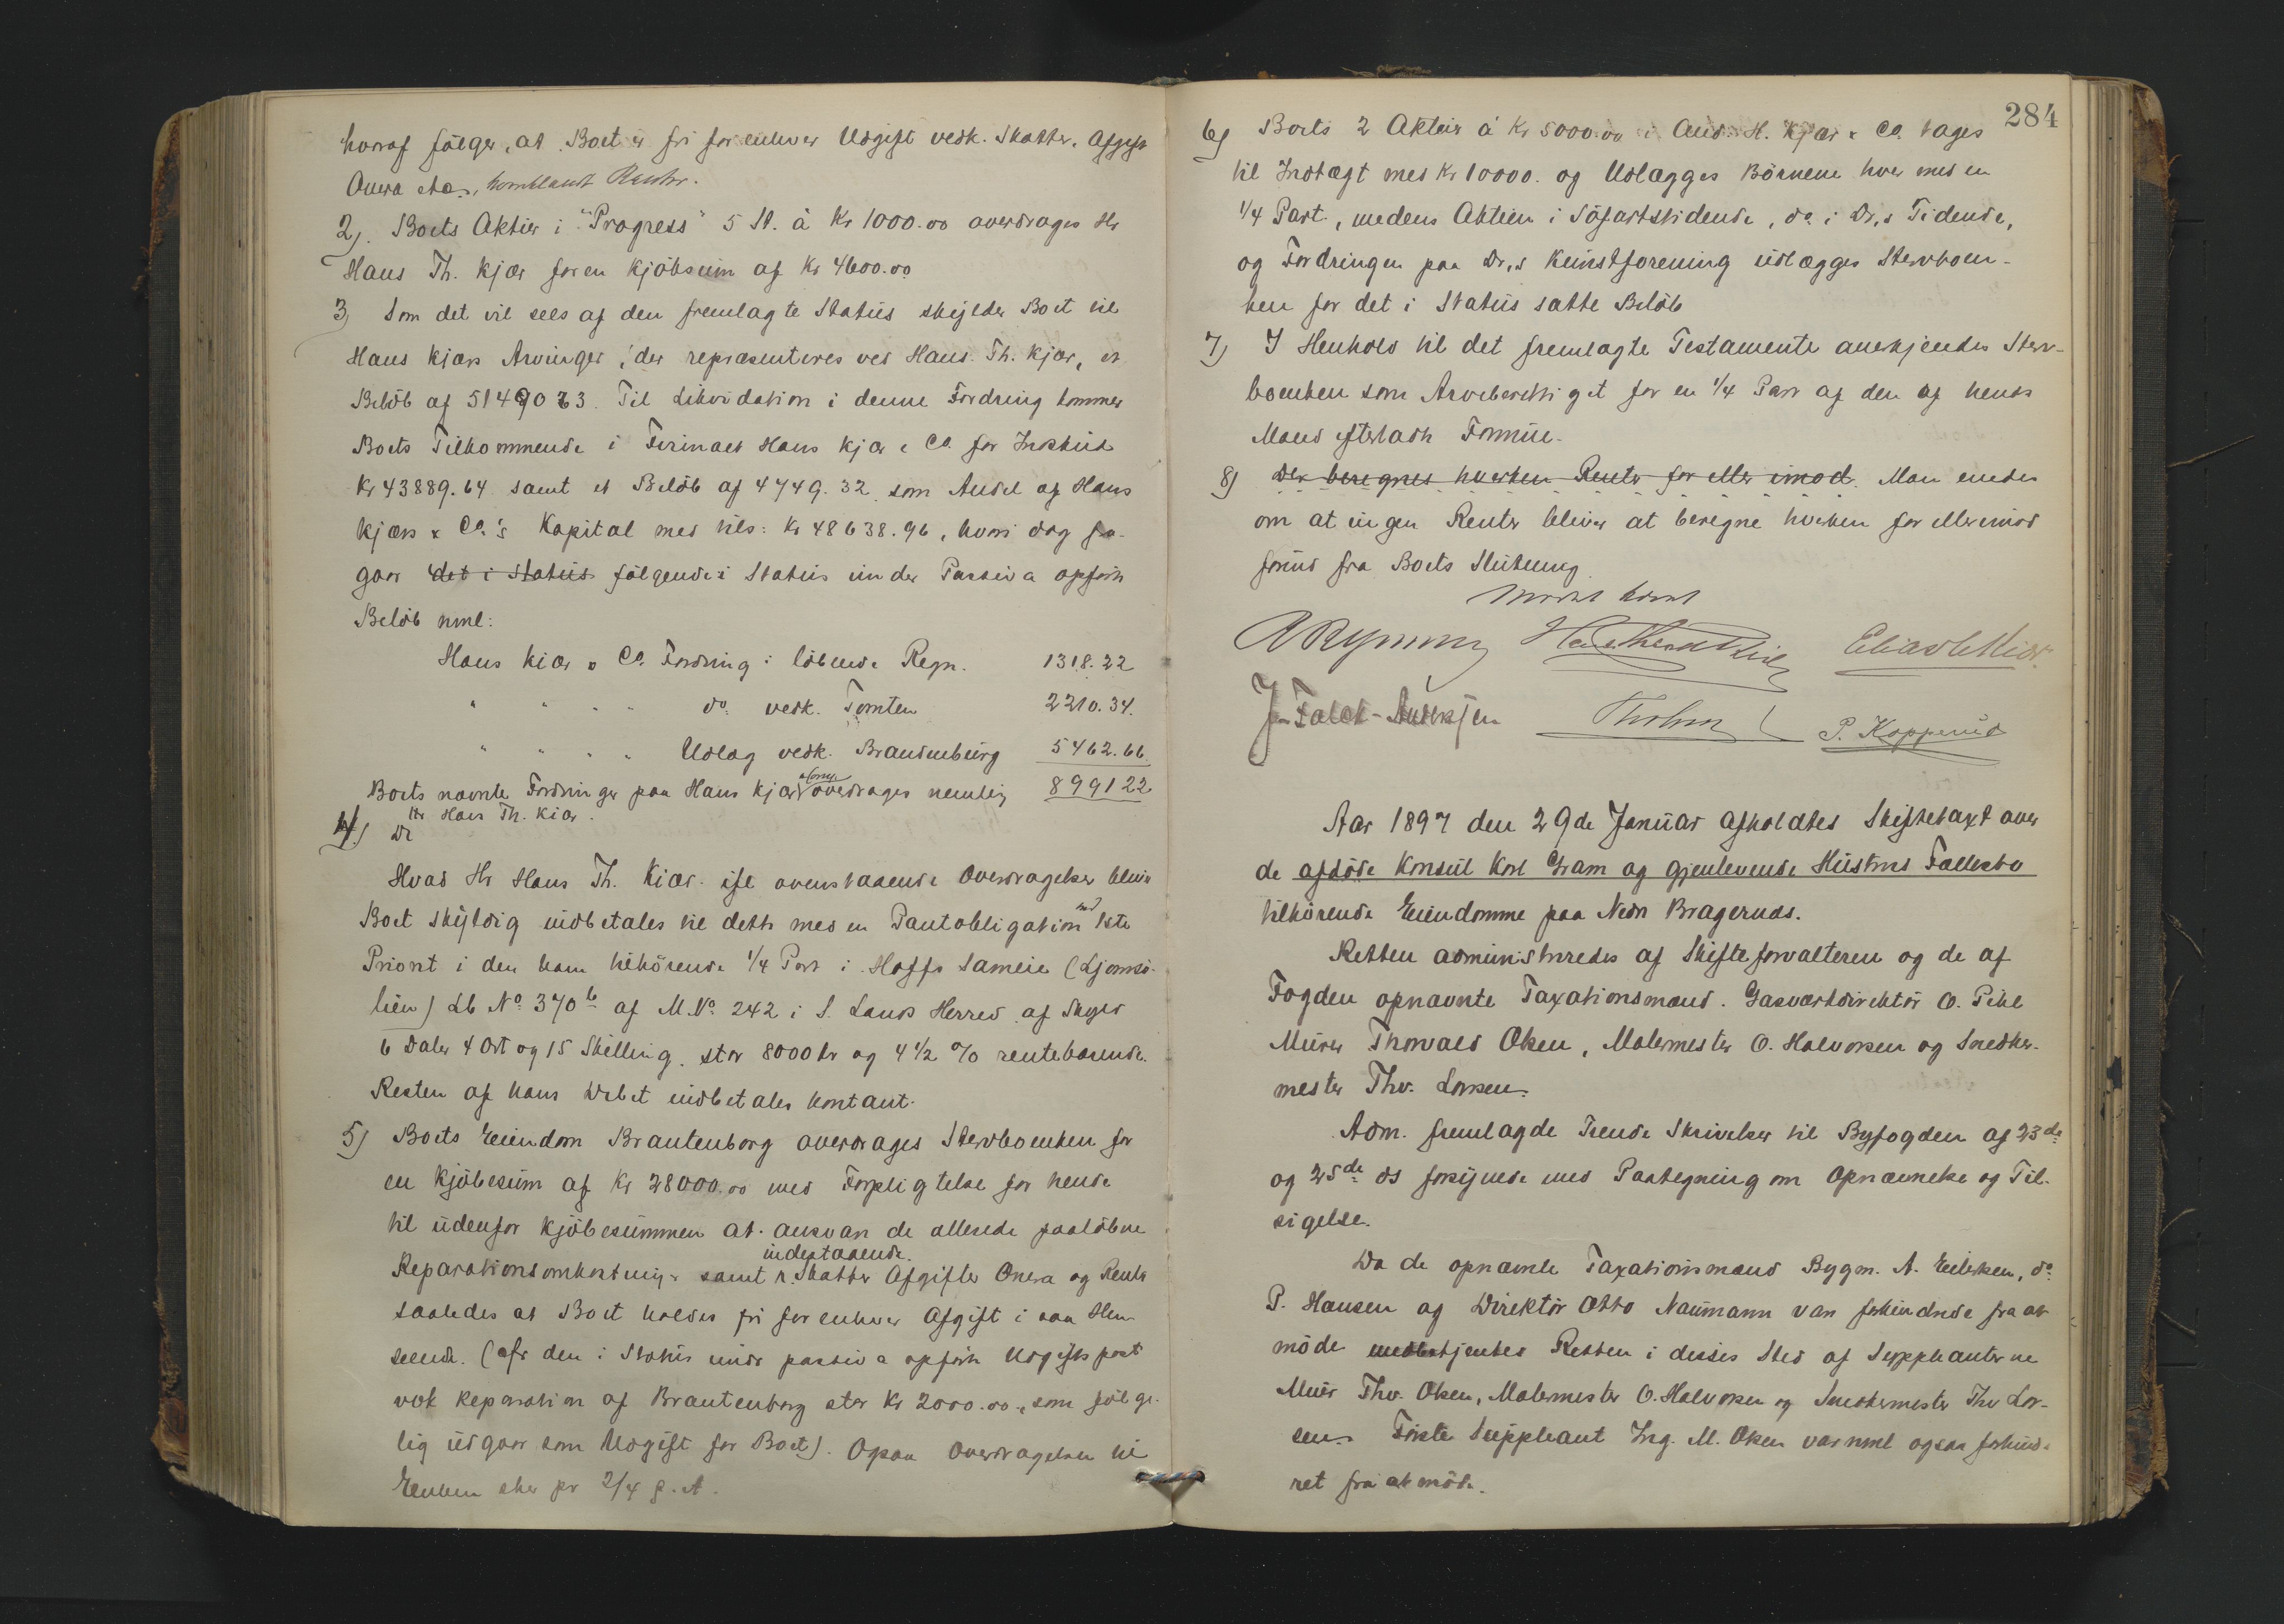 hvoraf følger, at Boet er fri for enhver Udgift vedk. Skatter, Afgift
Onera etc., hvorblandt Renter.
2). Boets Aktier i "Progress" 5 St. à Kr 1000.00 overdrages Hr
Hans Th. Kjær for en Kjöbsum af Kr 4600.00
3) Som det vil sees af den fremlagte Status skylder Boet til
Hans Kjærs Arvinger, der repræsenteres ved Hans Th. Kjær, et
Belöb af 51490 73. Til Likvidation i denne Fordring kommer
Boets Tilkommende i Firmaet Hans Kjær & Co. for Indskud
Kr 43889.64 samt et Belöb af 4749.32 som Andel af Hans
Kjærs & Co.'s Kapital med tils: Kr 48638.96, hvori dog fra-
gaar det i Status fölgende i Status under Passiva opförte
Belöb nml:
Hans Kiær & Co. Fordring i löbende Regn. 1318.22
" " " " do. vedk. Tomten 2210.34.
" " " " Udlag vedk. Brandenburg 5462.66
Boets nævnte Fordringer paa Hans Kjær overdrages nemlig 8991 22
Hr Hans Th. Kiær.
4) Di
Hvad Hr Hans Th. Kiær ifl ovenstaaende Overdragelser bliver
Boet skyldig indbetales til dette med en Pantobligation md 1ste
Priorit i den ham tilhörende 1/4 Part i Hoffs Sameie (Ljomsö-
lien) Lb No. 370 b af M.No. 242 i S. Lands Herred af Skyld
6 Daler 4 Ort og 15 Skilling, stor 8000 kr og 4 1/2 % rentebærende.
Resten af hans Debet indbetales kontant.
5) Boets Eiendom Brantenborg overdrages Stervboenken for
en Kjöbesum af Kr 28000.00 med Forpligtelse for hende
til udenfor Kjöbesummen at ansvare de allerede paalöbne
indestaaende
Reparationsomkostninger samt r. Skatter Afgifter Onera og Renter
saaledes at Boet holdes fri for enhver Afgift i saa Hen-
seende. (cfr den i Status under passiva opförte Udgiftspost
vdk Reparation af Brantenborg stor Kr 2000.00, som fölge-
lig udgaar som Udgift for Boet). Opaa Overdragelsen til
Enken sker pr 2/4 f. A.
284
6) Boets 2 Aktier à Kr 5000.00 i And. H. Kjær & Co. tages
til Indtægt med Kr 10000. og Udlægges Börnene hver med en
1/4 Part, medens Aktien i Söfartstidende, do. i Dr.s Tidende,
og Fordringen paa Dr.s Kunstforening udlægges Stervboen-
ken for det i Status satte Belöb
7) I Henhold til det fremlagte Testamente anerkjendes Sterv-
boenken som Arveberettiget for en 1/4 Part af den af hendes
Mand efterladte Formue.
8) Der beregnes hverken Renter for eller imod. Man enedes
om at ingen Renter bliver at beregne hverken for eller imod
forend fra Boets Slutning
Mödet hævet
Elias C Kiær
J Falck-Andersen Tholm P. Kopperud
Aar 1897 den 29de Januar afholdtes Skiftetaxt over
de afdöde Konsul Karl Gram og gjenlevende Hustrus Fællesbo
tilhörende Eiendomme paa Nedre Bragernæs.
Retten administreredes af Skifteforvalteren og de af
Fogden opnævnte Taxationsmænd. Gasværkdirektör O. Pihl
Murer Thorvald Olsen, Malermester O. Halvorsen og Snedker-
mester Thv. Larsen.
Adm. fremlagde Tvende Skrivelser til Byfogden af 23de
og 25de ds forsynede med Paategning om Opnævnelse og Til-
sigelse.
Da de opnævnte Taxationsmænd Bygm. A. Eilersen, do.
P. Hansen og Direktör Otto Naumann var forhindrede fra at
möde betjentes Retten i disses Sted af Suppleanterne
Murer Thv. Olsen, Malermester O. Halvorsen og Snedkermester Thv Lar-
sen. Förste Suppleant Ing. M. Olsen var nml ogsaa forhind-
ret fra at möde.